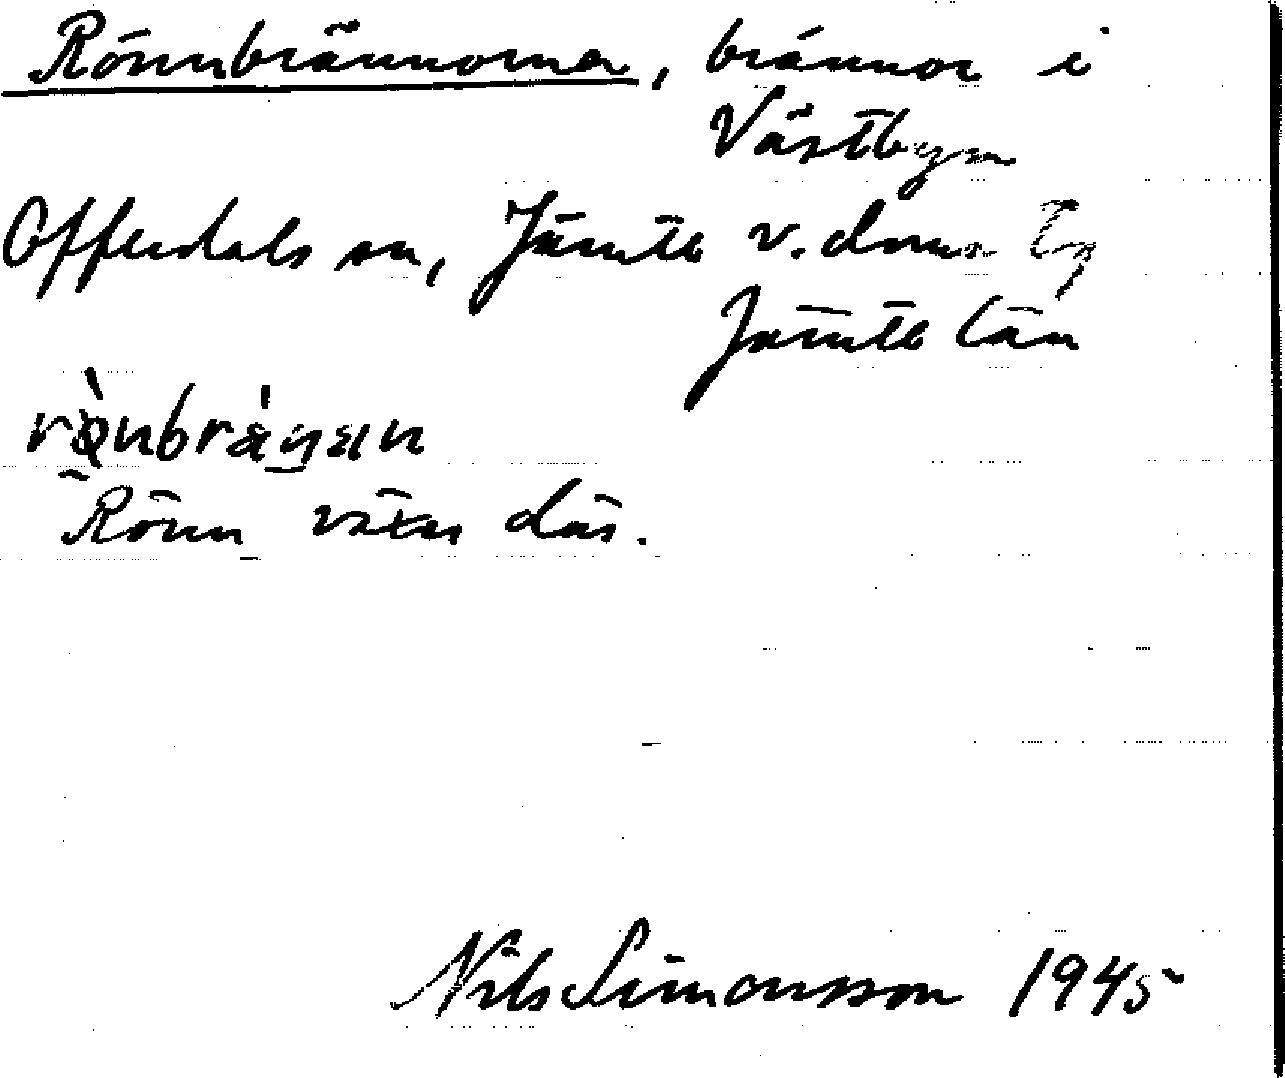 Rönnbrännorna, brännor i
Västbyn
Offerdals sn, Jämtl v. doms tg
Jämtl län
Rönn växer där.
Nils Simonsson 1945